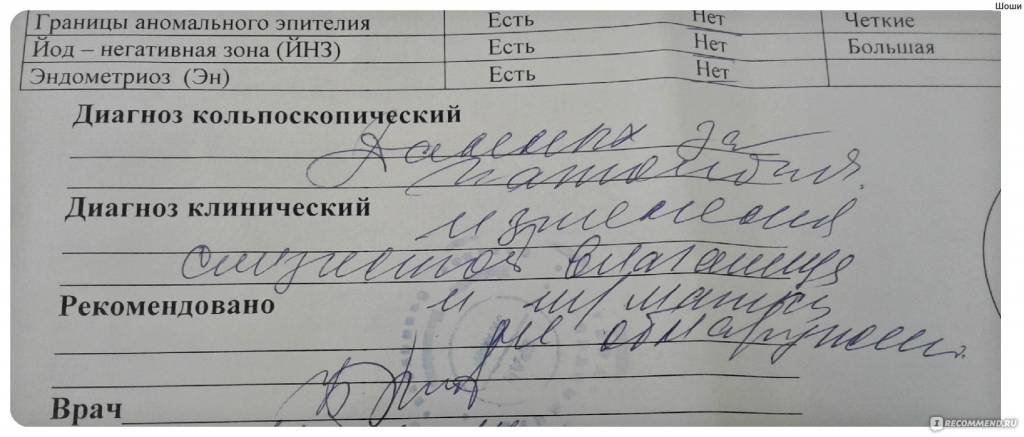 Шоши
Границы аномального эпителия Есть Нет Четкие
Йод – негативная зона (ЙНЗ) Есть Нет Большая
Эндометриоз (Эн) Есть Нет
Диагноз кольпоскопический
Данных за
Диагноз клинический изменения
слизистой влагалища
Рекомендовано и ш/матки
не обнаружен.
Врач
I RECOMMEND.RU